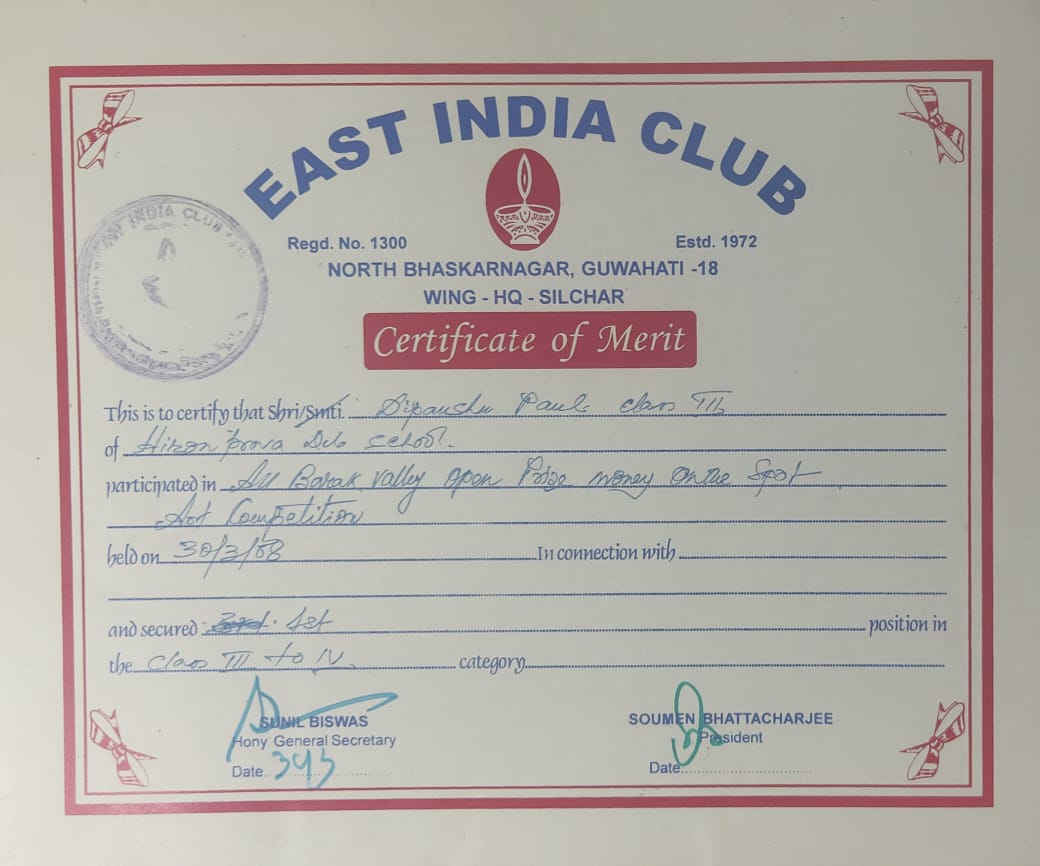 EAST INDIA CLUB
INDIA CLUB
Regd. No. 1300
Estd. 1972
NORTH BHASKARNAGAR, GUWAHATI -18
WING - HQ - SILCHAR
Certificate of Merit
This is to certify that Shri/Smti. Dipanshu Paul class III
of Hiron prova Deb school.
participated in All Barak valley open Prize money on the Spot
Art Competition
held on 30/3/08 In connection with
and secured 3rd. 1st position in
the class III to IV category
SUNIL BISWAS
Hony General Secretary
Date
SOUMEN BHATTACHARJEE
President
Date